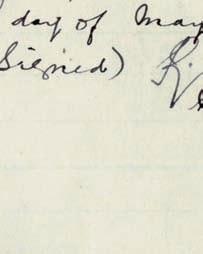 day of May
(Signed) R.